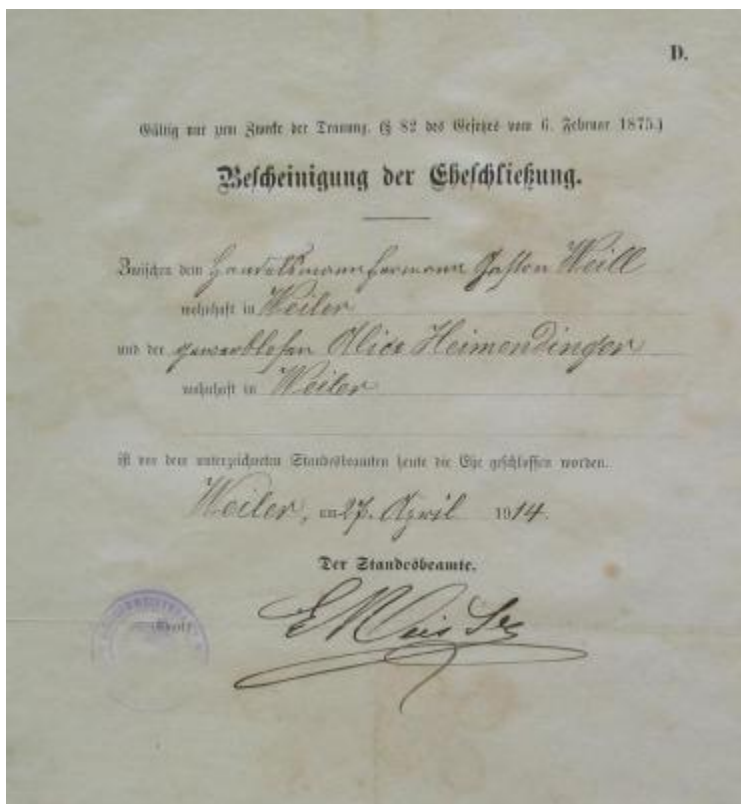 D.
Gültig nur zum Zwecke der Trauung. (§ 82 des Gesetzes vom 6. Februar 1875.)
Bescheinigung der Eheschließung.
Zwischen dem Handelsmann Hermann Gaston Weill
wohnhaft in Weiler
und der gewerblosen Alice Heimendinger
wohnhaft in Weiler
ist vor dem unterzeichneten Standesbeamten heute die Ehe geschlossen worden.
Weiler, am 27. April 1914.
Der Standesbeamte.
(Siegel)